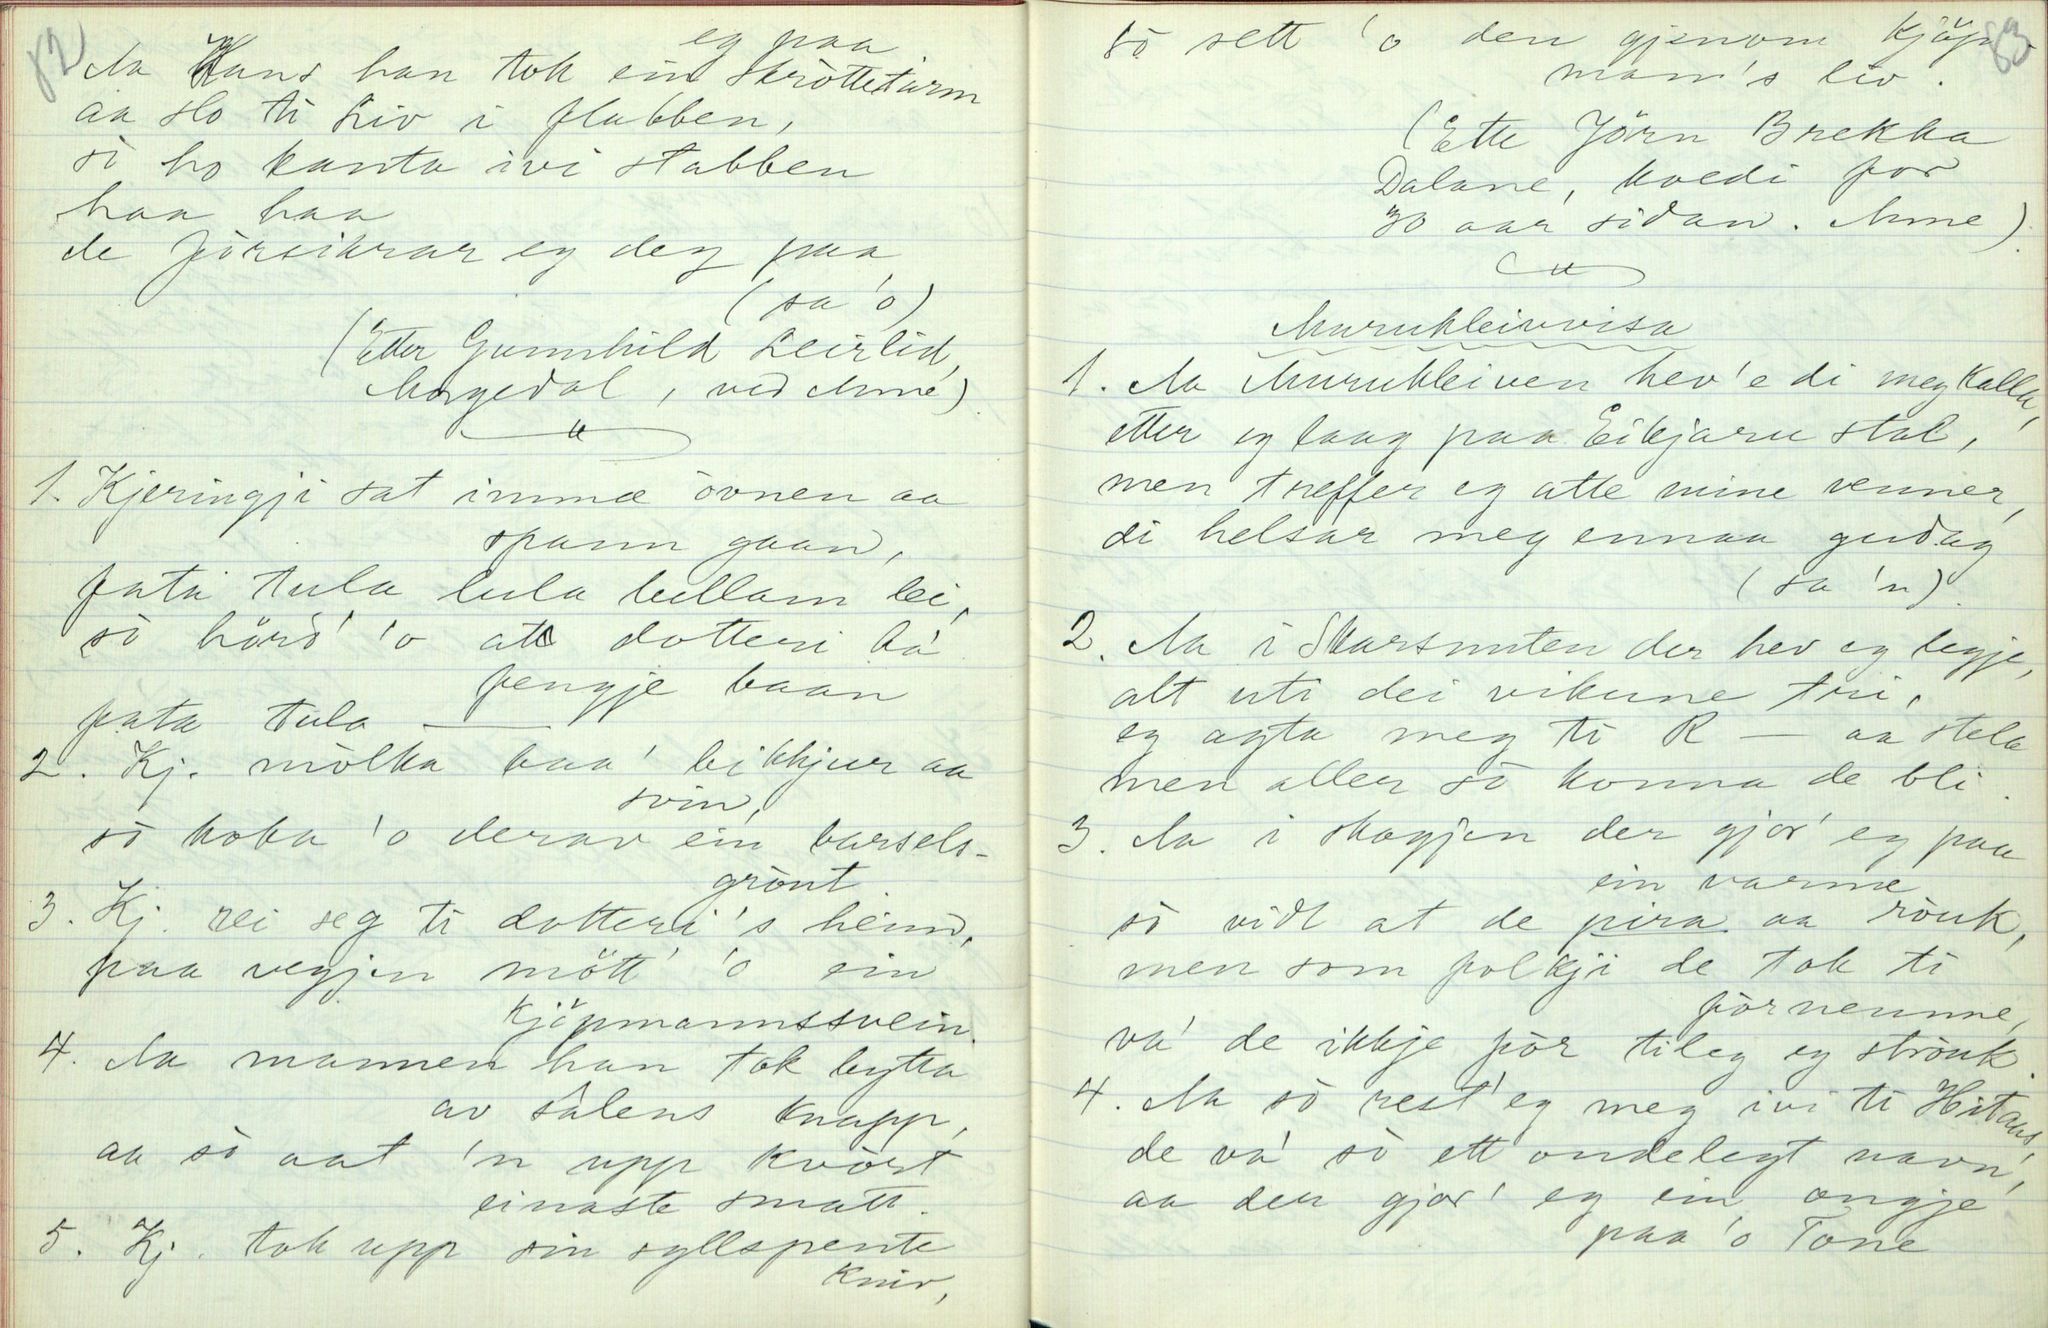 82
eg paa
Aa Hans han tok ein skrottetarm
aa slo ti Liv i flabben,
so ho kanta ivi stabben
haa haa
de försikrar eg deg paa
(sa 'o)
(Etter Gunnhild Leirlid,
Morgedal, ved Anne)
"
1. Kjeringji sat inmæ ovnen aa
spann gaan,
fati tula lula lullam lei,
so hörd' 'o att dotteri ha'
fengje baan
fata tula —
2. Kj. mölka baa' bikkjur aa
svin,
so koka 'o derav ein barsels-
grönt
3. Kj. rei seg ti dotteri's heim,
paa vegjen mött' 'o ein
Kjöpmannssvein
4. Aa mannen han tok bytta
av sålens knapp,
aa so aat 'n upp kvört
einaste smatt.
5. Kj. tok upp sin syllspente
kniv,
83
so sett 'o den gjenom Kjöp-
mann's liv.
(Ette Jörn Brekka
Dalane, kvedi for
30 aar sidan. Anne)
"
Murukleivvisa
1. Aa Murukleiven hev'e di meg kalla,
etter eg laag paa Eikjaru stal,
men treffer eg atte mine venner,
di helsar meg ennaa gudag
(sa 'n)
2. Aa i Skarsnuten der hev eg legje,
alt uti dei vikune tri,
eg agta meg ti R — aa stela
men aller so konna de bli.
3. Aa i skogjen der gjor' eg paa
ein varme
so vidt at de pira aa rouk,
men som folkji de tok ti
förnemme,
va' de ikkje för tileg eg strouk.
4. Aa so rest' eg meg ivi ti Hitaas,
de va' so ett ondelegt navn,
aa der gjor' eg ein ongje
paa 'o Tone